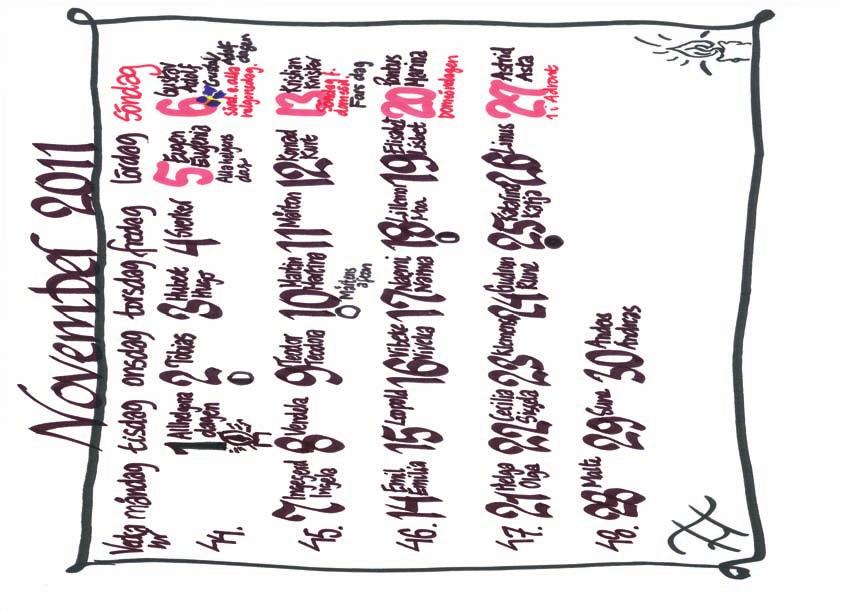 November 2011
Vecka nr
måndag
tisdag
onsdag
torsdag
fredag
lördag
söndag
44.
1 Allhelgona
dagen
2 Tobias
3 Hubert
Hugo
4 Sverker
5 Eugen
Eugenia
Alla helgons
dag
6 Gustav
Adolf
Gustav Adolf
dagen
Sönd. e. alla
helgonsdag.
45.
7 Ingegerd
Ingela
8 Vendela
9 Teodor
Teodora
10 Martin
Martina
Mårtens
afton
11 Mårten
12 Konrad
Kurt
13 Kristian
Krister
Söndag f.
domsönd.
Fars dag
46.
14 Emil
Emilia
15 Leopold
16 Vibeke
Viveka
17 Naemi
Naima
18 Lillemor
Moa
19 Elisabet
Lisbet
20 Pontus
Marina
Domsöndagen
47.
21 Helga
Olga
22 Cecilia
Sissela
23 Klemens
24 Gudrun
Rune
25 Katarina
Katja
26 Linus
27 Astrid
Asta
1:a Advent
48.
28 Malte
29 Sune
30 Andreas